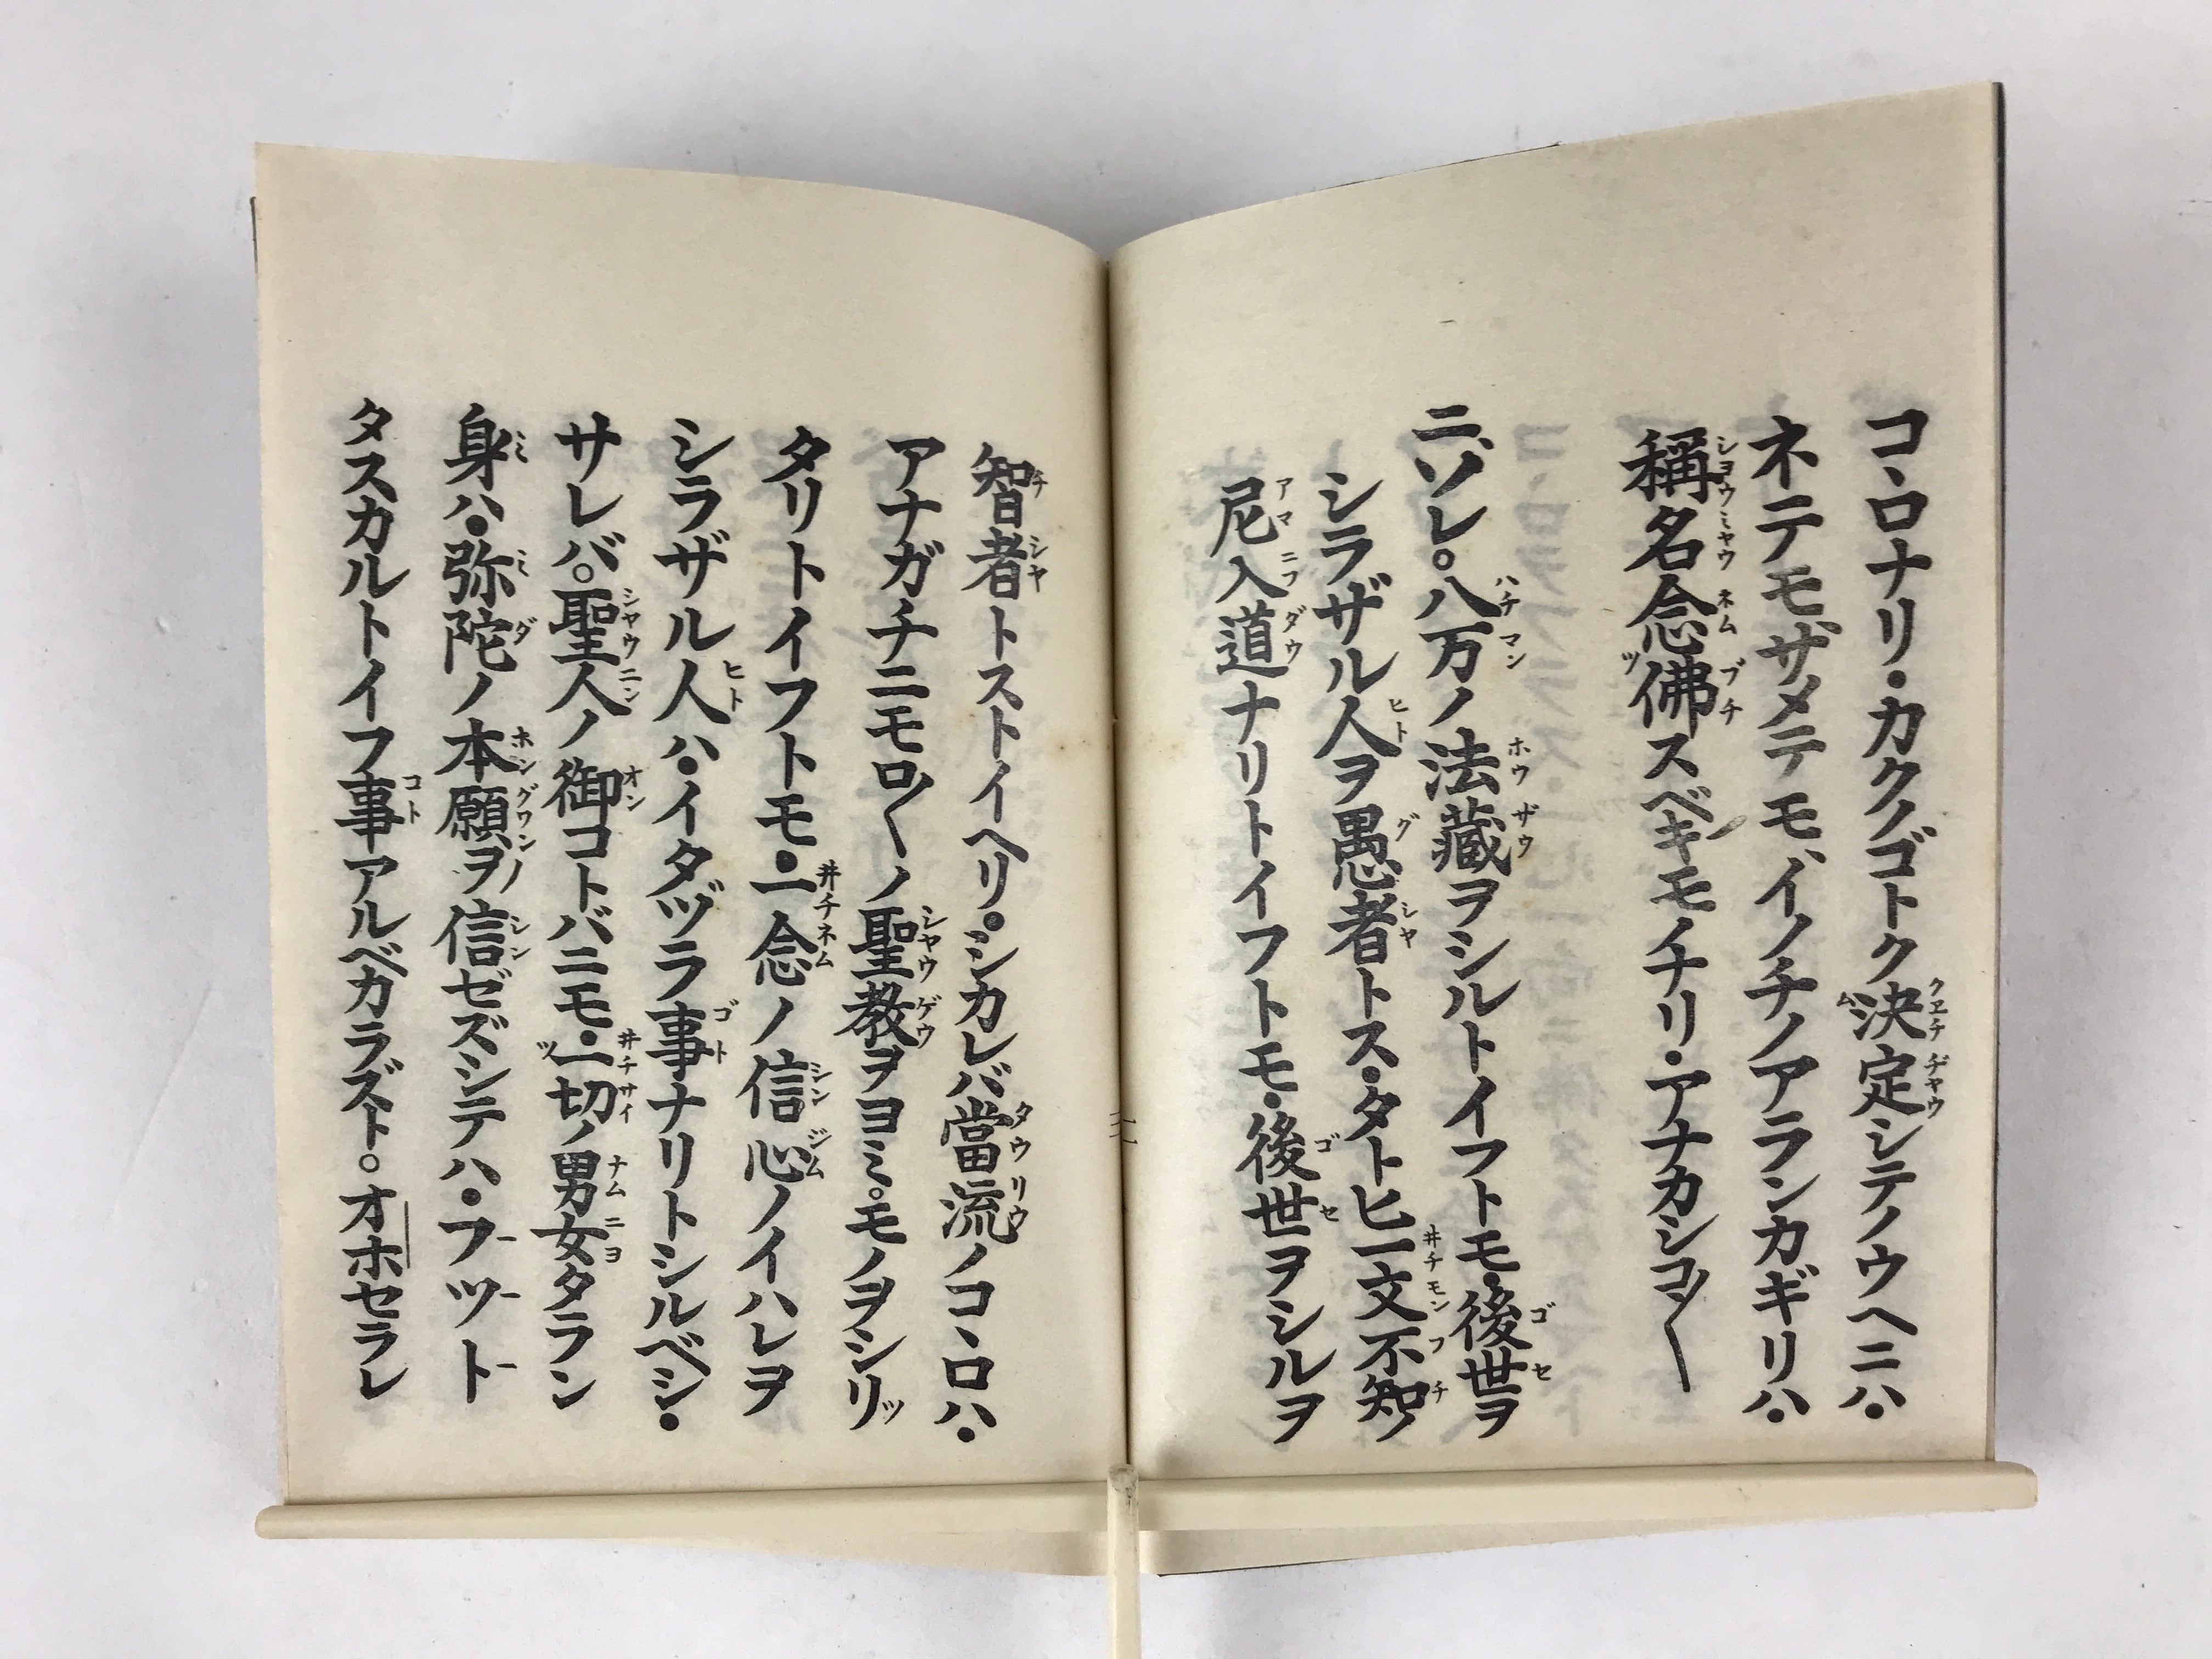 コヽロナリ・カクノゴトク決定シテノウヘニハ・
ネテモ、サメテモ、イノチノアランカギリハ・
稱名念佛スベキモノナリ・アナカシコ〳〵
二、ソレ。八万ノ法藏ヲシルトイフトモ・後世ヲ
シラザル人ヲ愚者トス・タトヒ一文不知ノ
尼入道ナリトイフトモ・後世ヲシルヲ
智者トストイヘリ。シカレバ當流ノコヽロハ・
アナガチニモロ〳〵ノ聖教ヲヨミ。モノヲシリッ
タリトイフトモ・一念ノ信心ノイハレヲ
シラザル人ハ・イタヅラ事ナリトシルベシ・
サレバ。聖人ノ御コトバニモ・一切ノ男女タラン
身ハ・弥陀ノ本願ヲ信ゼズシテハ・フツト
タスカルトイフ事アルベカラズト。オホセラレ